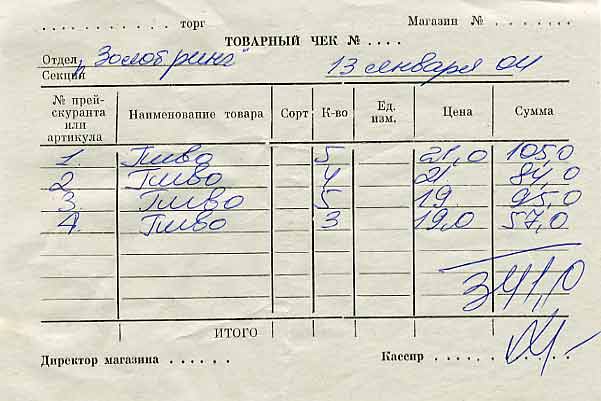 . . . . . . . . . . . . торг Магазин № . . . . . . .
ТОВАРНЫЙ ЧЕК № . . . .
Отдел „Золот ринг“
Секция 13 января 04
№ прей-скуранта или артикула Наименование товара Сорт К-во Ед. изм. Цена Сумма
1. Пиво 5 21,0 105,0
2 Пиво 4 21 84,0
3. Пиво 5 19 95,0
4. Пиво 3 19,0 57,0
341,0
ИТОГО
Директор магазина . . . . . . Кассир . . . . . .